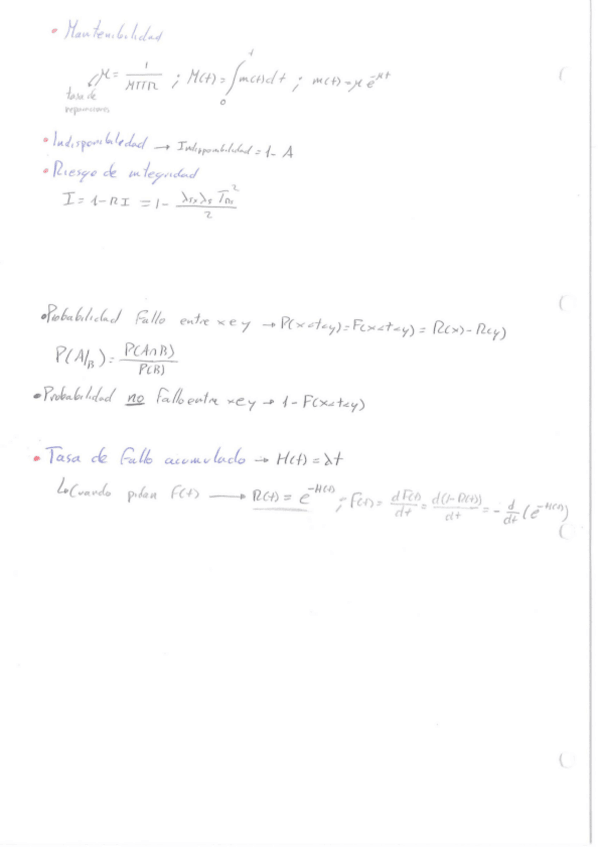 • Mantenibilidad
μ = 1/MTTR ; M(t) = ∫₀ᵗ m(t)dt ; m(t) = μ e^-μt
tasa de
reparaciones
• Indisponibilidad → Indisponibilidad = 1 - A
• Riesgo de integridad
I = 1 - RI = 1 - T²/2
• Probabilidad Fallo entre x e y → P(x<t<y) = F(x<t<y) = R(x) - R(y)
P(A/B) = P(A∩B)/P(B)
• Probabilidad no Fallo entre x e y → 1 - F(x<t<y)
• Tasa de fallo acumulado → H(t) = λt
↳ Cuando pidan F(t) → R(t) = e^-H(t) ; F(t) = dF(t)/dt = d(1-R(t))/dt = - d/dt (e^-H(t))